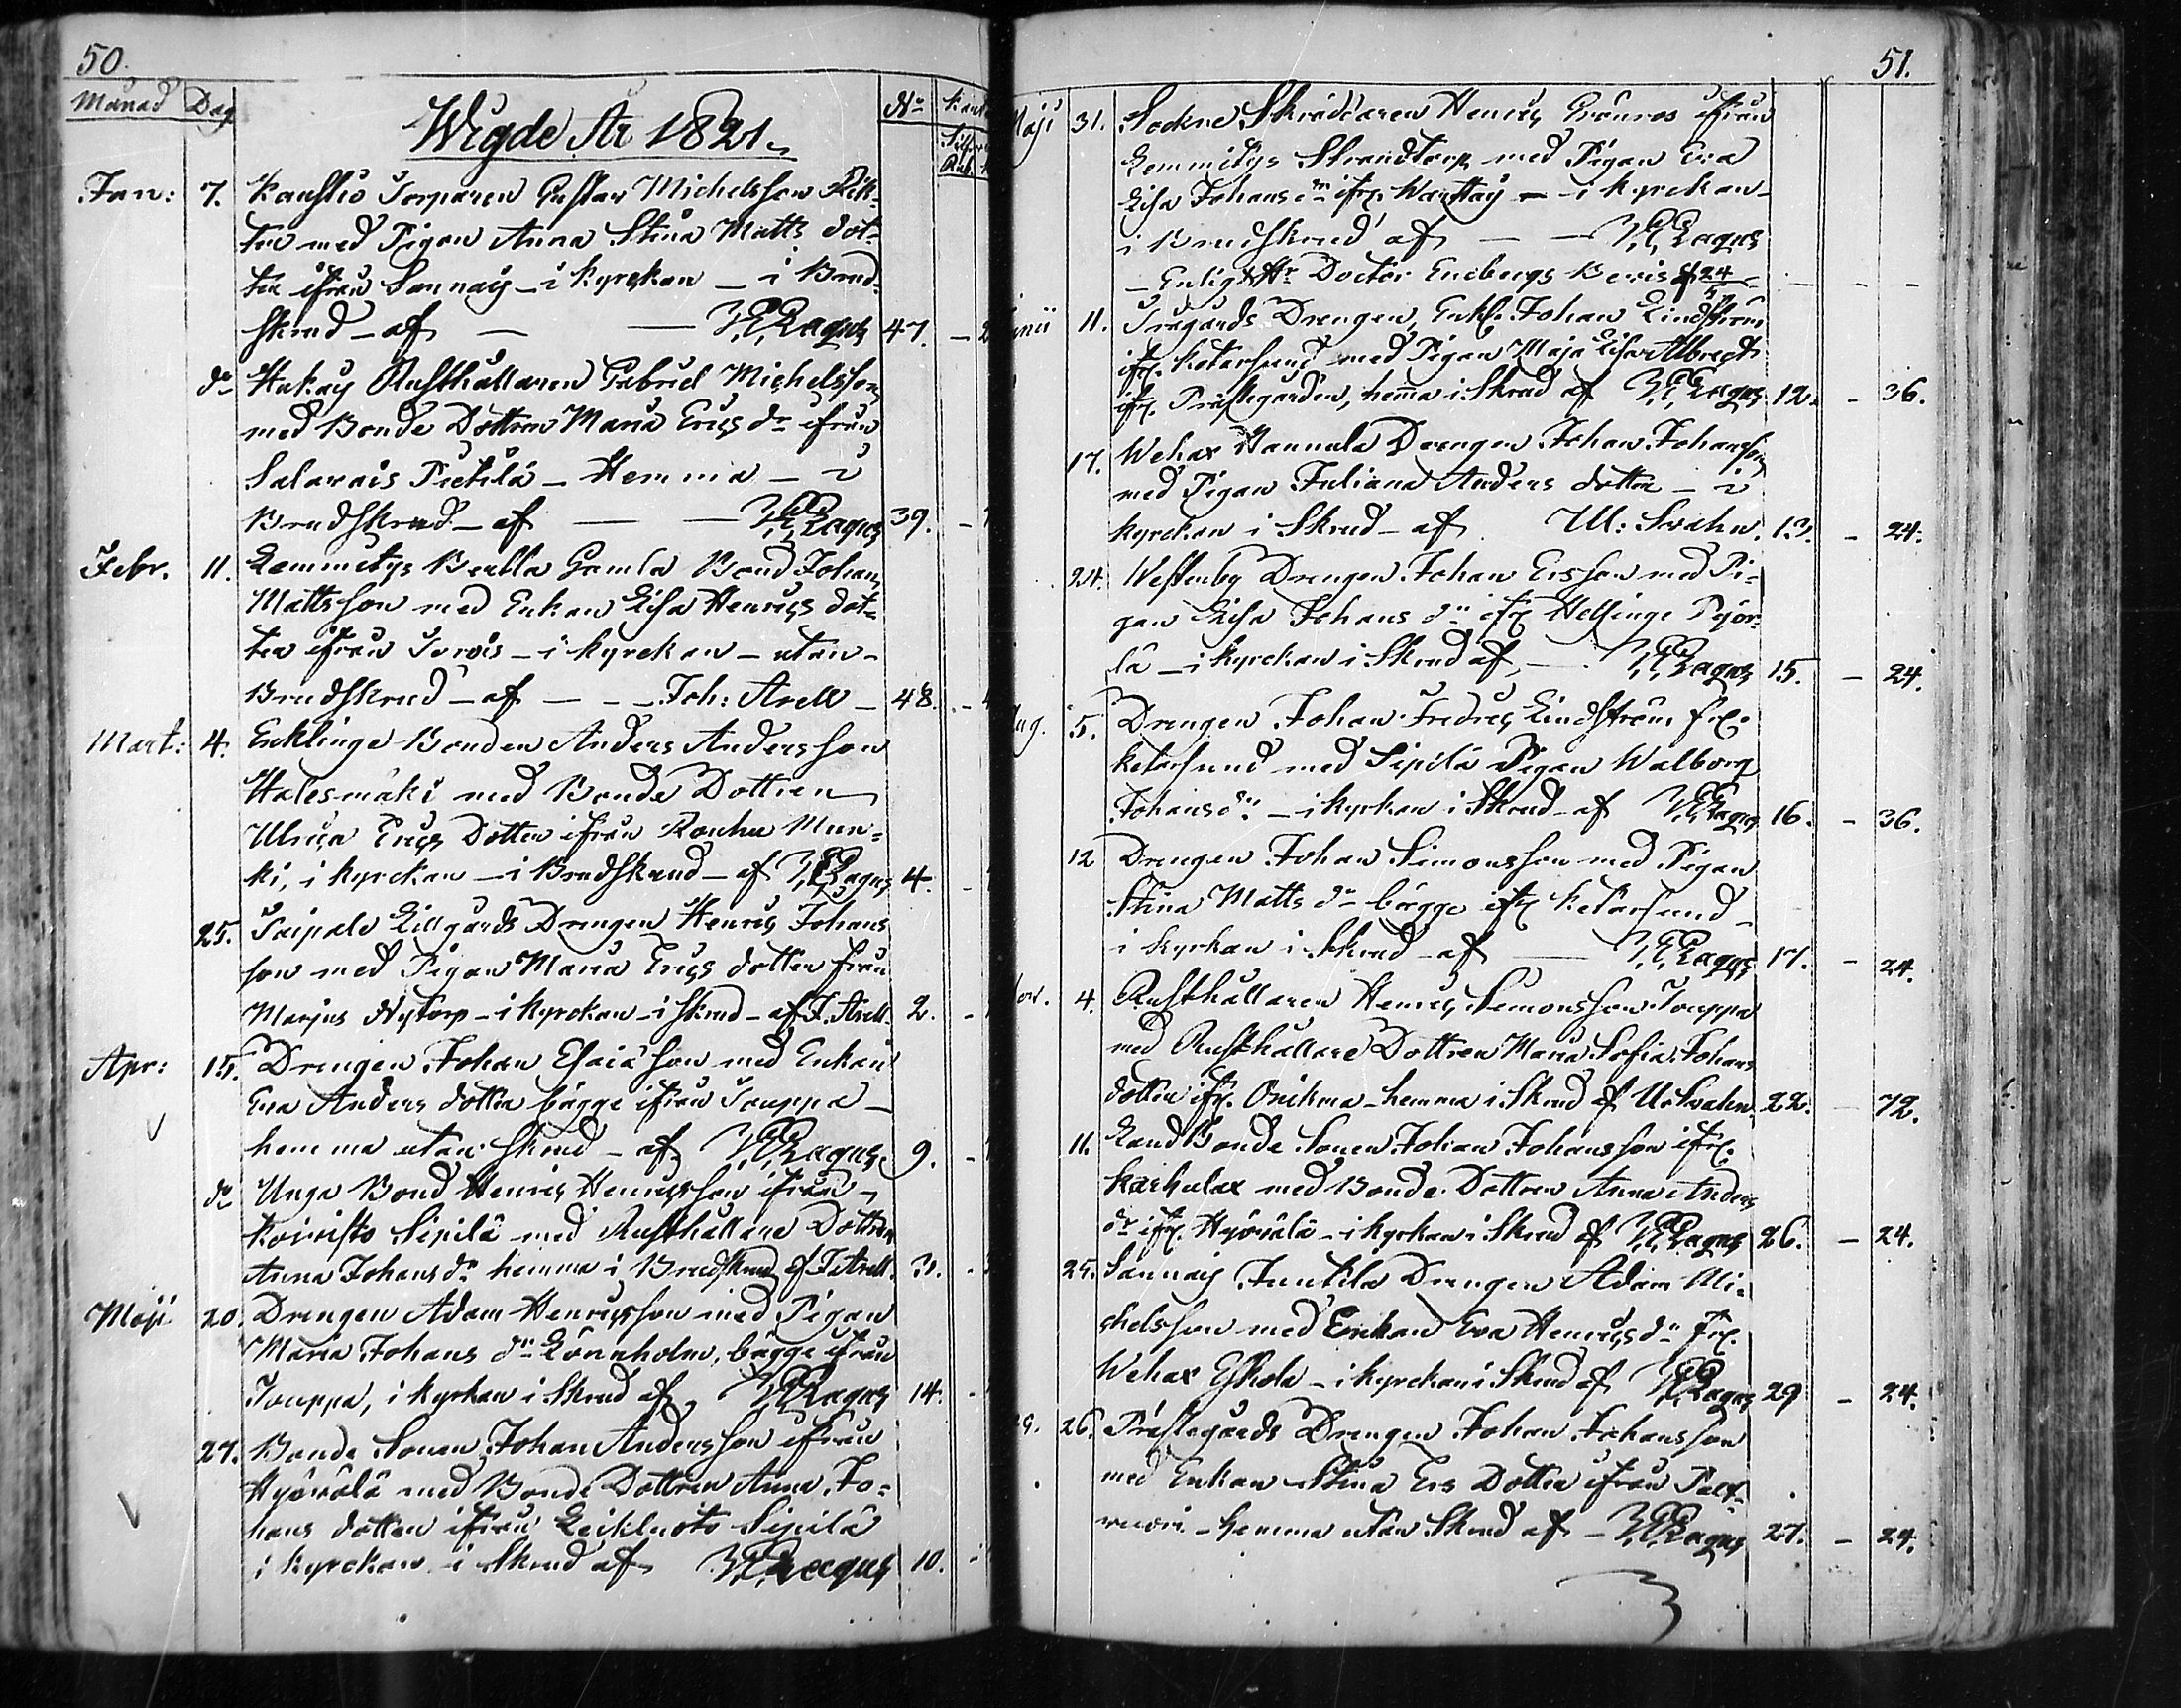 50.
Månad Dag
Wigde År 1821.
No
Jan: 7. Torparen Gustav Michelsson
med Pigan Anna Stina Matts dot-
ter ifrån Sannais - i Kyrckan - i Brud-
skrud - af - - Ragus 47.
do Rusthållaren Gabriel Michelsson
med Bonde Dottren Maria Erics dr ifrån
Salavais Pietilä - Hemma - i
Brudskrud - af - - Ragus 39.
Febr. 11. Lemmitys Gamla Bond Johan
Mattsson med Enkan Lisa Henrics dot-
ter ifrån - i Kyrckan - utan -
Brudskrud - af - - - Joh: Arell - 48.
Mart: 4. Enklinge Bonden Anders Andersson
med Bonde Dottren
Ulrica Erics Dotter ifrån
ki, i Kyrckan - i Brudskrud - af Ragus 4.
25. Saipale Lillgårds Drengen Henric Johans
son med Pigan Maria Erics dotter från
Marjus Nytorp - i Kyrckan - i skrud - af J. Arell. 2.
Apr: 15. Drengen Johan Esaiæson med Enkan
Eva Anders dotter bägge ifrån Jouppa -
hemma utan skrud - af Ragus. 9.
do Unga Bond Henric Henricsson ifrån
Koivisto Sipilä med Rusthållare Dottren
Anna Johans dr hemma i Brudskrud af J. Arell. 31.
Maji 20. Drengen Adam Henricsson med Pigan
Maria Johans dr Lönnholm, bägge ifrån
Jouppa, i Kyrkan i Skrud af Ragus 14.
27. Bonde Sonen Johan Andersson ifrån
Hyövälä med Bonde Dottren Anna Jo-
hans dotter ifrån Sipilä
i Kyrckan i Skrud af Ragus 10.
51.
Maji 31. Sockne Skräddaren Henric Grönroos ifrån
Lemmitys Strandtorp med Pigan Eva
Lisa Johans dr ifr. - i Kyrckan -
i Brudskrud af - - Ragus
- Enligt Hr Doctor Enebergs Bevis af 24/5 -
Junii 11. Drengen, Enkl. Johan Lindström
ifr. Ketarsund med Pigan Maja Lisa Albrecht
ifr. Prästegården, hemma i Skrud af Ragus 12. - 36.
17. Wehax Hannula Drengen Johan Johansson
med Pigan Juliana Anders dotter - i
Kyrckan i Skrud - af U: Svahn. 13. - 24.
24. Westenby Drengen Johan Ersson med Pi-
gan Lisa Johans dr ifr. Helsinge
lä - i Kyrckan i Skrud af - Ragus 15. - 24.
Aug. 5. Drengen Johan Fredric Lindström fr.
Ketarsund med Sipilä Pigan Walborg
Johans dr - i Kyrkan i Skrud - af Ragus 16. - 36.
12 Drengen Johan Simonsson med Pigan
Stina Matts dr bägge ifr. Ketarsund -
i Kyrkan i Skrud - af - Ragus 17. - 24.
Nov. 4. Rusthållaren Henric Simonsson Jouppa
med Rusthållare Dottren Maria Sofia Johans
dotter ifr. - hemma i Skrud af U: Svahn. 22. - 72.
11. Land Bonde Sonen Johan Johansson ifr.
Karhulax med Bonde Dottren Anna Anders
dr ifr. Hyövälä - i Kyrkan i Skrud af Ragus 26. - 24.
25. Sannais Junkila Drengen Adam Mi-
chelsson med Enkan Eva Henrics dr fr.
Wehax Eskola - i Kyrckan i Skrud af Ragus 29 - 24.
26. Prästegårds Drengen Johan Johansson
med Enkan Stina Ers Dotter ifrån
- hemma utan Skrud af - Ragus 27. - 24.